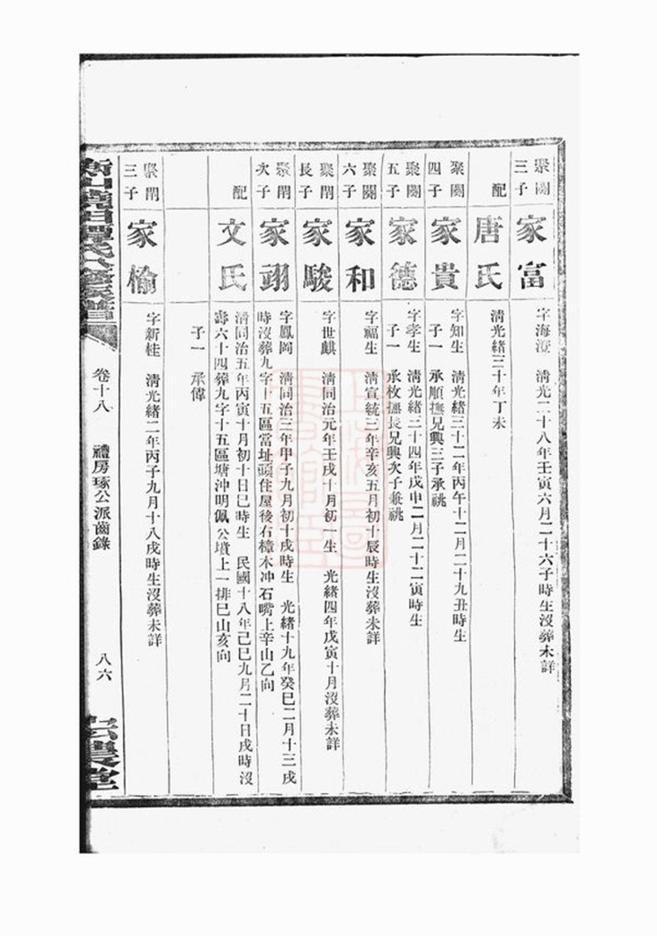 聚闓三子 家富 字海澄 清光緒二十八年壬寅六月二十六子時生沒葬未詳
配 唐氏 清光緒三十年丁未
聚闓四子 家貴 字知生 清光緒三十二年丙午十二月二十九丑時生
子一 承順撫兄興三子承祧
聚闓五子 家德 字孝生 清光緒三十四年戊申二月二十二寅時生
子一 承枚撫長兄興次子兼祧
聚闓六子 家和 字福生 清宣統三年辛亥五月初十辰時生沒葬未詳
聚閈長子 家駿 字世麒 清同治元年壬戌十月初一生 光緒四年戊寅十月沒葬未詳
聚閈次子 家翊 字鳳岡 清同治三年甲子九月初十戌時生 光緒十九年癸巳二月十三戌
時沒葬九字十五區當址頭住屋後右樟木冲石嘴上辛山乙向
配 文氏 清同治五年丙寅十月初十日巳時生 民國十八年己巳九月二十日戌時沒
壽六十四葬九字十五區塘沖明佩公墳上一排巳山亥向
子一 承偉
聚閈三子 家愉 字新桂 清光緒二年丙子九月十八戌時生沒葬未詳
卷十八 禮房琢公派齒錄 八六